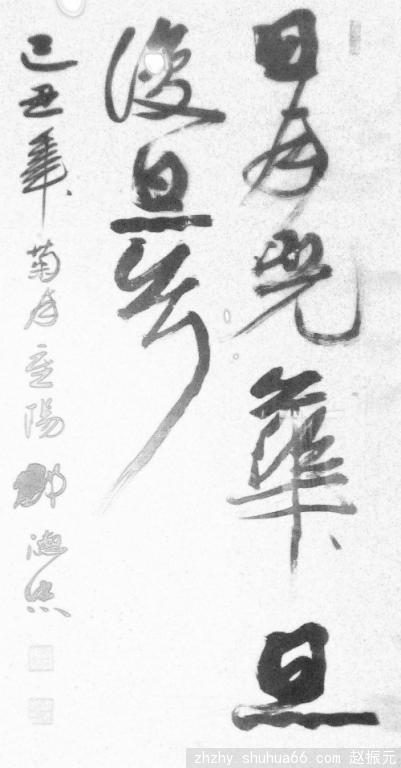 日月光華旦
復旦兮
己丑年菊月重陽鄭德
zhzhy.shuhua66.com 赵振元